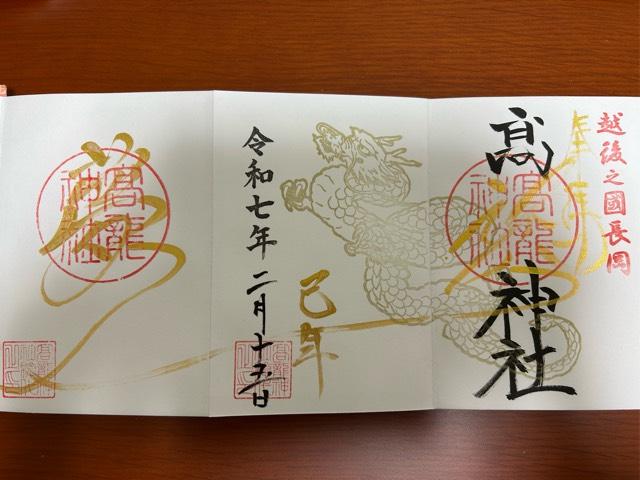 越後之國長岡
奉拝
髙 神社
髙龍
神社
巳年
令和七年 二月十五日
髙龍
神社